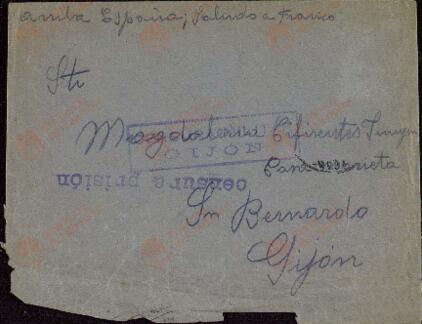 Arriba España; Saludo a Franco
Sta
Magdalena Cifuentes
GIJÓN
Casa
censura prisión
Sn Bernardo
Gijón